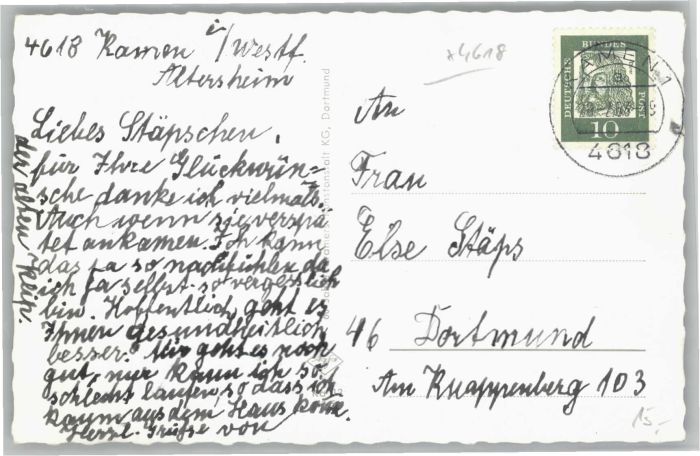 4618 Kamen i/Westf.
Altersheim
Liebes Stäpschen,
für Ihre Glückwün-
sche danke ich vielmals.
Auch wenn sie verspä
tet ankamen. Ich kann
das ja so nachfühlen, da
ich ja selbst so vergesslich
bin. Hoffentlich geht es
Ihnen gesundheitlich
besser. Mir geht es noch
gut, nur kann ich so
schlecht laufen, so dass ich
kaum aus dem Haus kom̄e.
Herzl. Grüße von
der alten
*4618
An
Frau
Else Stäps
46 Dortmund
Am Knappenberg 103
15,-
DEUTSCHE
BUNDES
POST
10
KAMEN 1
4618
KG, Dortmund